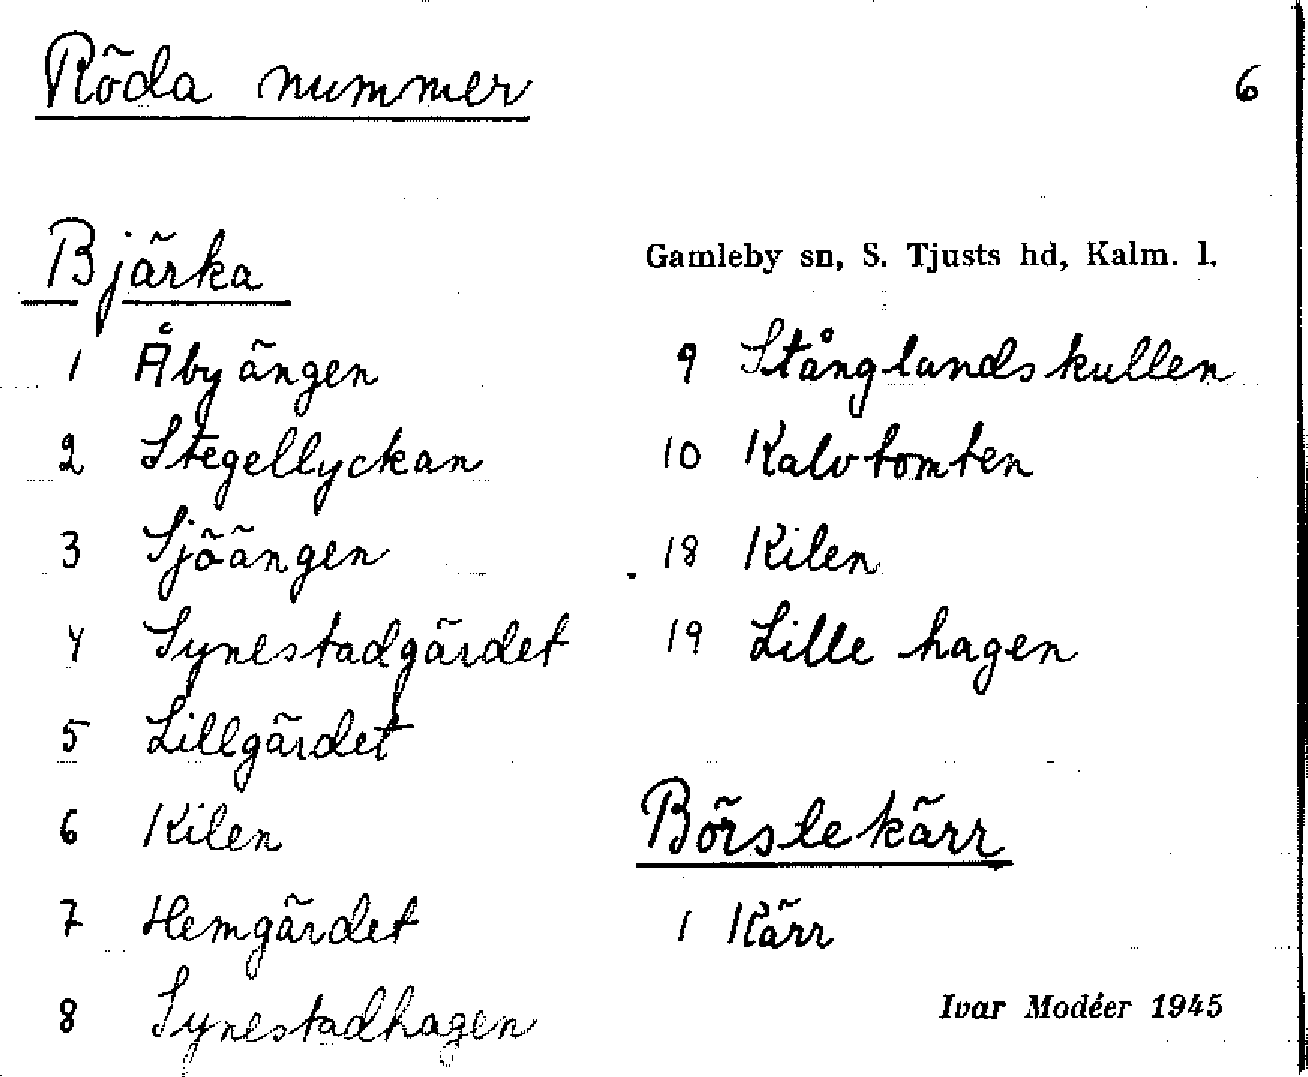 Röda nummer
6
Bjärka
Gamleby sn, S. Tjusts hd, Kalm. l.
1 Åbyängen
2 Stegellyckan
3 Sjöängen
4 Synestadgärdet
5 Lillgärdet
6 Kilen
7 Hemgärdet
8 Synestadhagen
9 Stånglandskullen
10 Kalvtomten
18 Kilen
19 Lille hagen
Börslekärr
1 Kärr
Ivar Modéer 1945